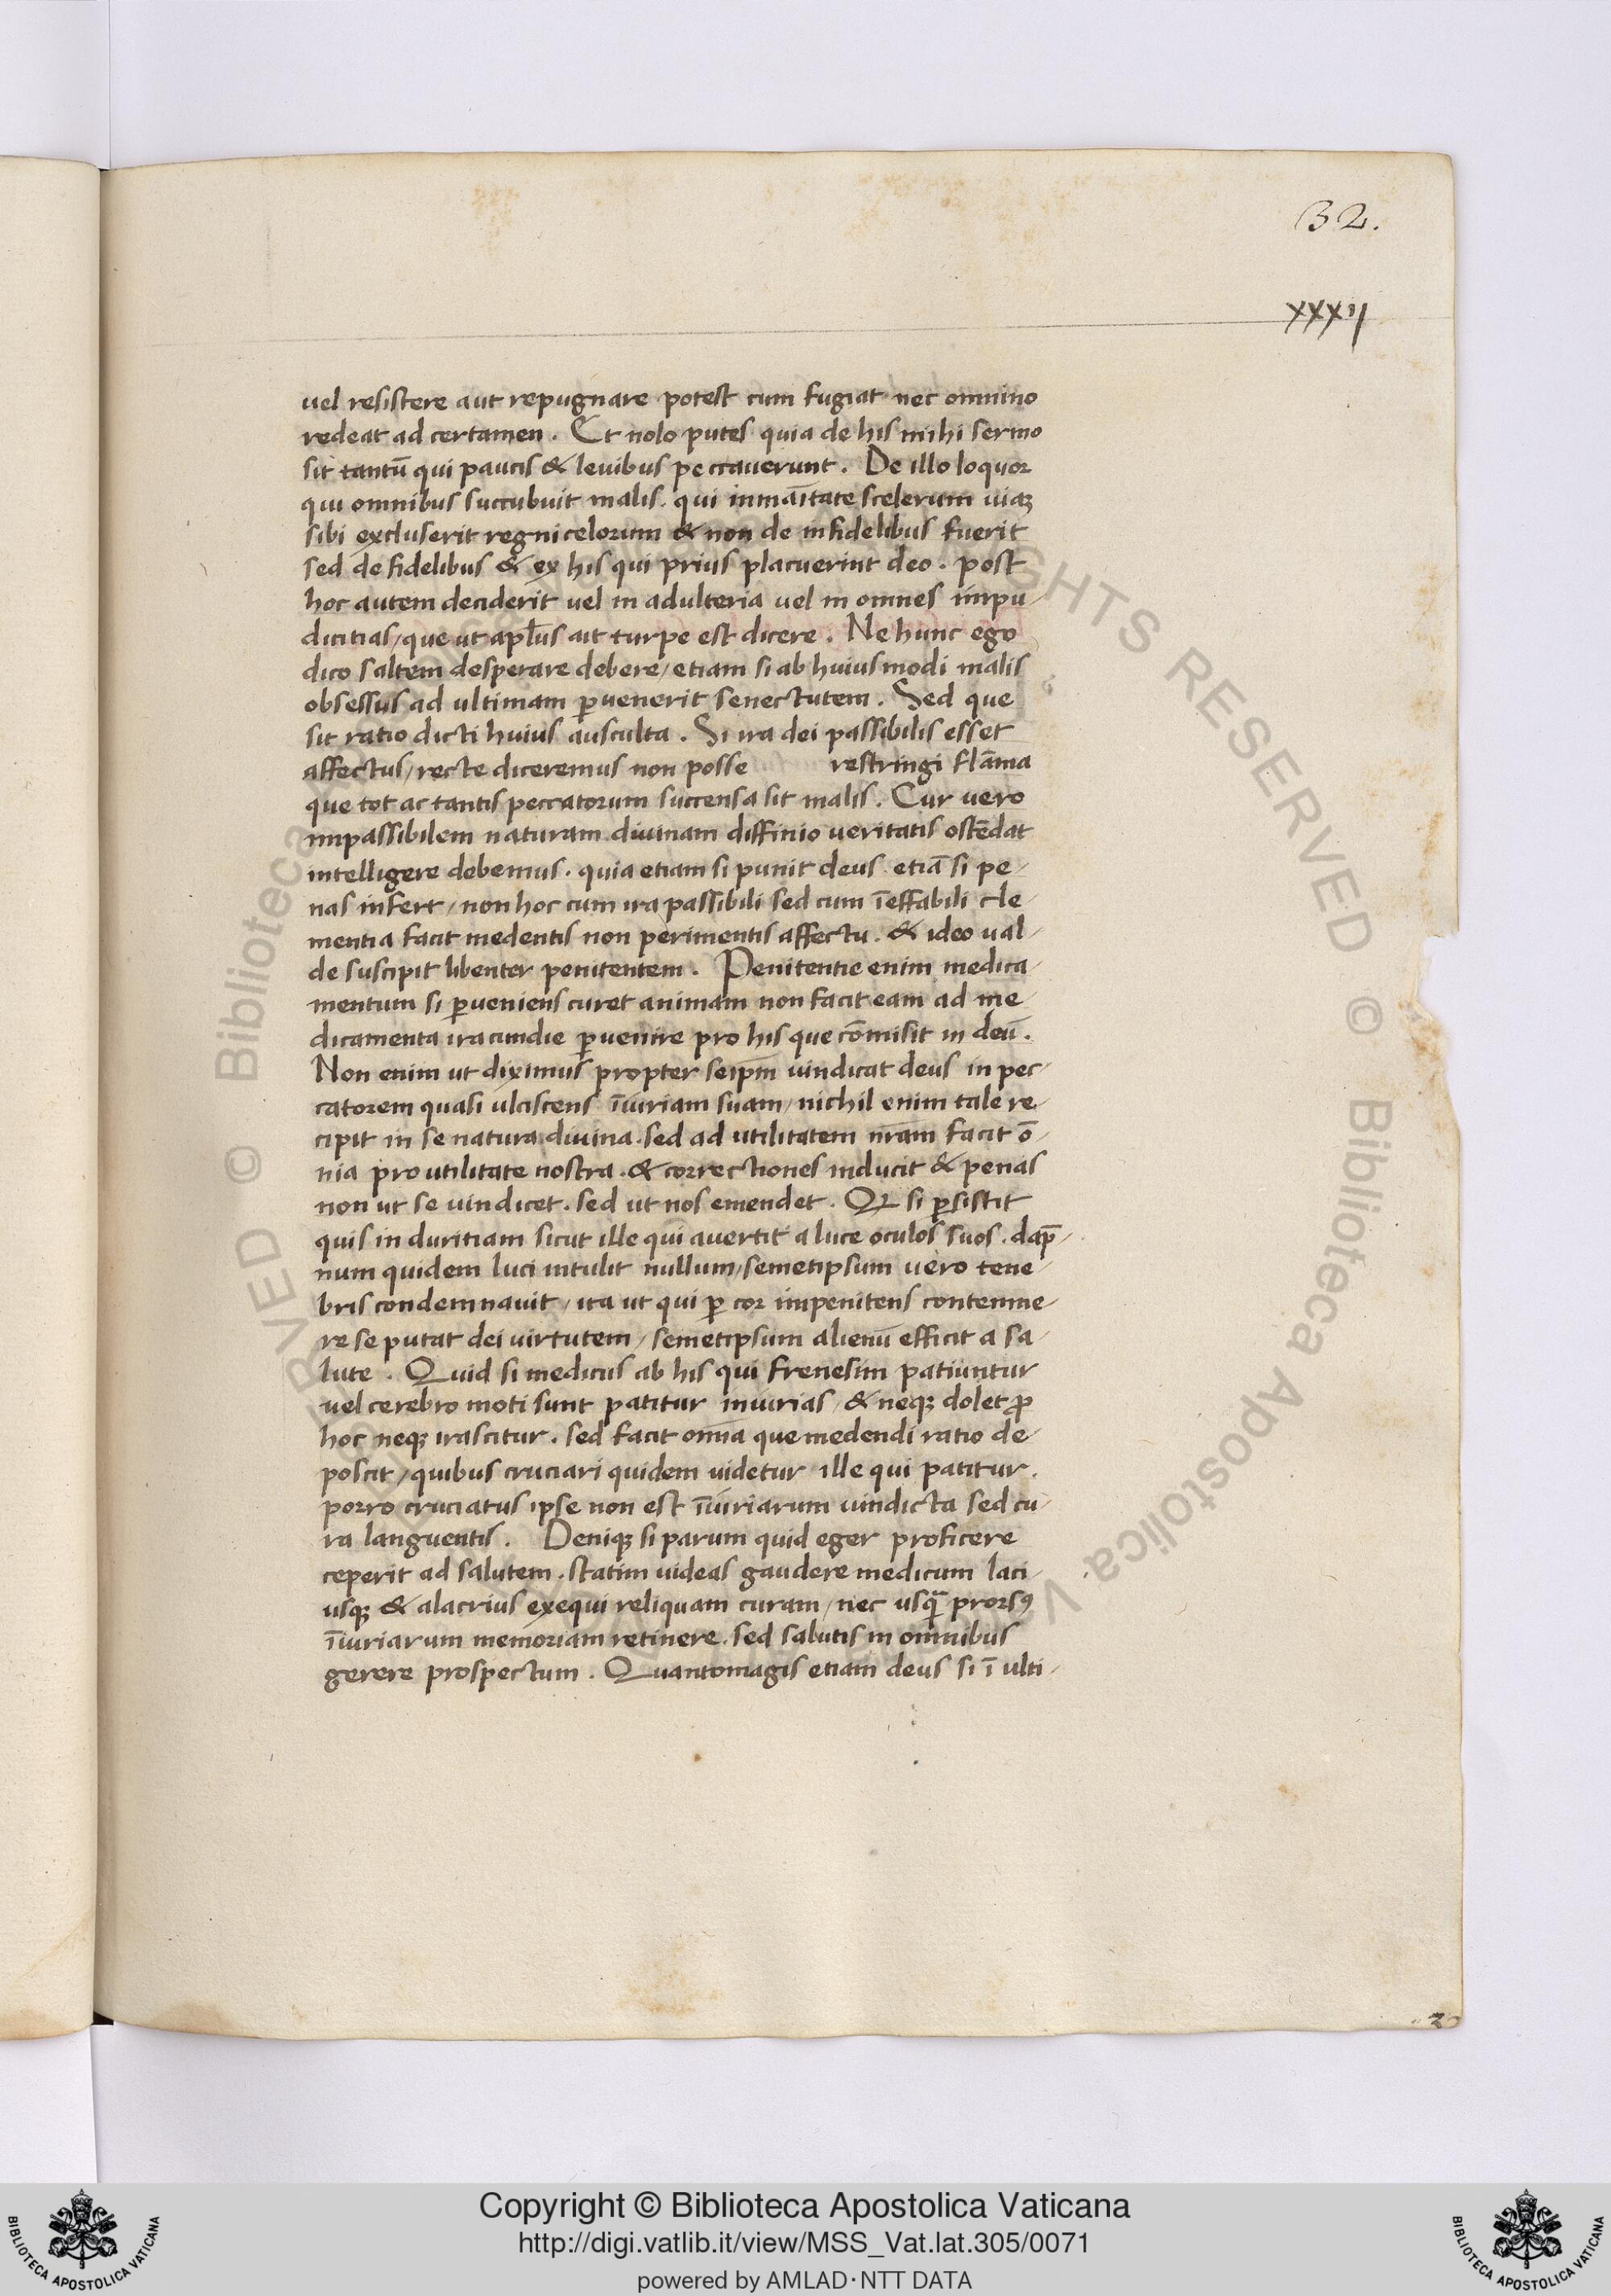 32.
xxxij
uel resistere aut repugnare potest cum fugiat nec omnino
redeat ad certamen. Et nolo putes quia de his mihi sermo
sit tantū qui paucis & leuibus peccauerunt. De illo loquor
qui omnibus succubuit malis. qui inmāitate scelerum uiaꝫ
sibi excluserit regni celorum & non de infidelibus fuerit
sed de fidelibus & ex his qui prius placuerint deo. post
hoc autem deciderit uel in adulteria uel in omnes impu-
dicitias/ que ut apl̄us ait turpe est dicere. Ne hunc ego
dico saltem desperare debere/ etiam si ab huiusmodi malis
obsessus ad ultimam ꝑuenerit senectutem. Sed que
sit ratio dicti huius ausculta. Si ira dei passibilis esset
affectus/ recte diceremus non posse restringi flāma
que tot ac tantis peccatorum succensa sit malis. Cur uero
impassibilem naturam diuinam diffinio ueritatis ostēdat
intelligere debemus. quia etiam si punit deus etiā si pe-
nas infert/ non hoc cum ira passibili sed cum īeffabili cle-
mentia facit medentis non perimentis affectu. & ideo ual-
de suscipit libenter penitentem. Penitentie enim medica-
mentum si ꝑueniens curet animam non facit eam ad me-
dicamenta iracundie ꝑuenire pro his que cōmisit in deū.
Non enim ut diximus propter seip̄m uindicat deus in pec-
catorem quasi ulciscens īiuriam suam/ nichil enim tale re-
cipit in se natura diuina. sed ad utilitatem nr̄am facit ō-
nia pro utilitate nostra. & correctiones inducit & penas
non ut se uindicet. sed ut nos emendet. Qꝫ si ꝑsistit
quis in duritiam sicut ille qui auertit a luce oculos suos. dap̄-
num quidem luci intulit nullum/ semetipsum uero tene-
bris condemnauit/ ita ut qui ꝑ cor impenitens contemne-
re se putat dei uirtutem/ semetipsum alienū efficit a sa-
lute. Quid si medicus ab his qui frenesim patiuntur
uel cerebro moti sunt patitur iniurias/ & neqꝫ dolet ꝓ
hoc neqꝫ irascitur. sed facit omnia que medendi ratio de-
poscit/ quibus cruciari quidem uidetur ille qui patitur.
porro cruciatus ipse non est īiuriarum uindicta sed cu-
ra languentis. Deniqꝫ si parum quid eger proficere
ceperit ad salutem. statim uideas gaudere medicum laci-
usqꝫ & alacrius exequi reliquam curam/ nec usq̄ prorsꝰ
īiuriarum memoriam retinere. sed salutis in omnibus
gerere prospectum. Quantomagis etiam deus si ī ulti-
Copyright © Biblioteca Apostolica Vaticana
http://digi.vatlib.it/view/MSS_Vat.lat.305/0071
powered by AMLAD·NTT DATA
BIBLIOTECA APOSTOLICA VATICANA
BIBLIOTECA APOSTOLICA VATICANA